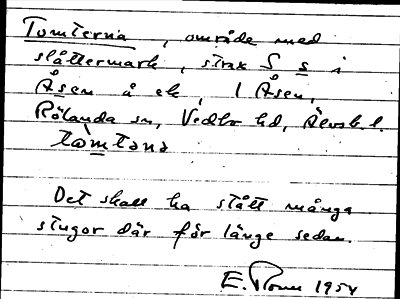 Tomterna, område med
slåttermark, strax S s i
Åsen å ek, 1 Åsen,
Rölanda sn, Vedbo hd, Älvsb. l.
tòmtana
Det skall ha stått många
stugor där för länge sedan.
E. 1954